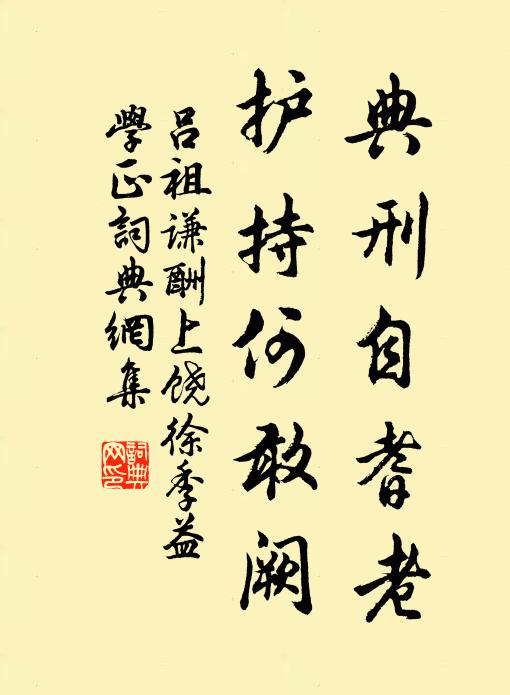 典刑自耆老
护持何敢阙
吕祖谦酬上饶徐季益
學正詞典網集
詞典
网印